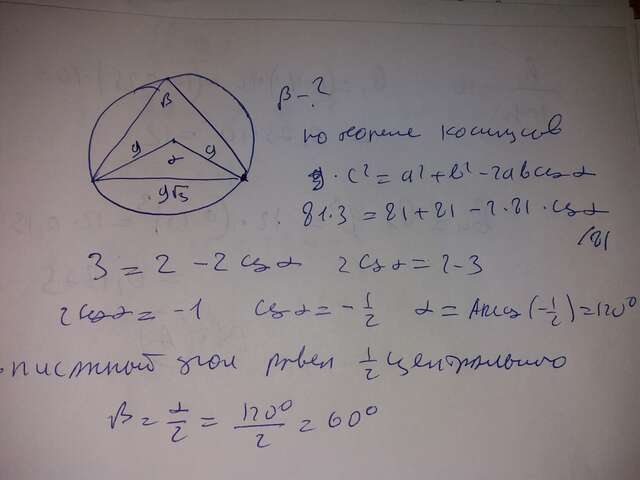 β
9
α
9
9√3
β - ?
по теореме косинусов
c² = a² + b² - 2ab cosα
81·3 = 81 + 81 - 2·81·cosα /81
3 = 2 - 2cosα 2cosα = 2 - 3
2cosα = -1 cosα = -1/2 α = Arccos(-1/2) = 120°
писанный угол равен 1/2 центрального
β = α/2 = 120°/2 = 60°